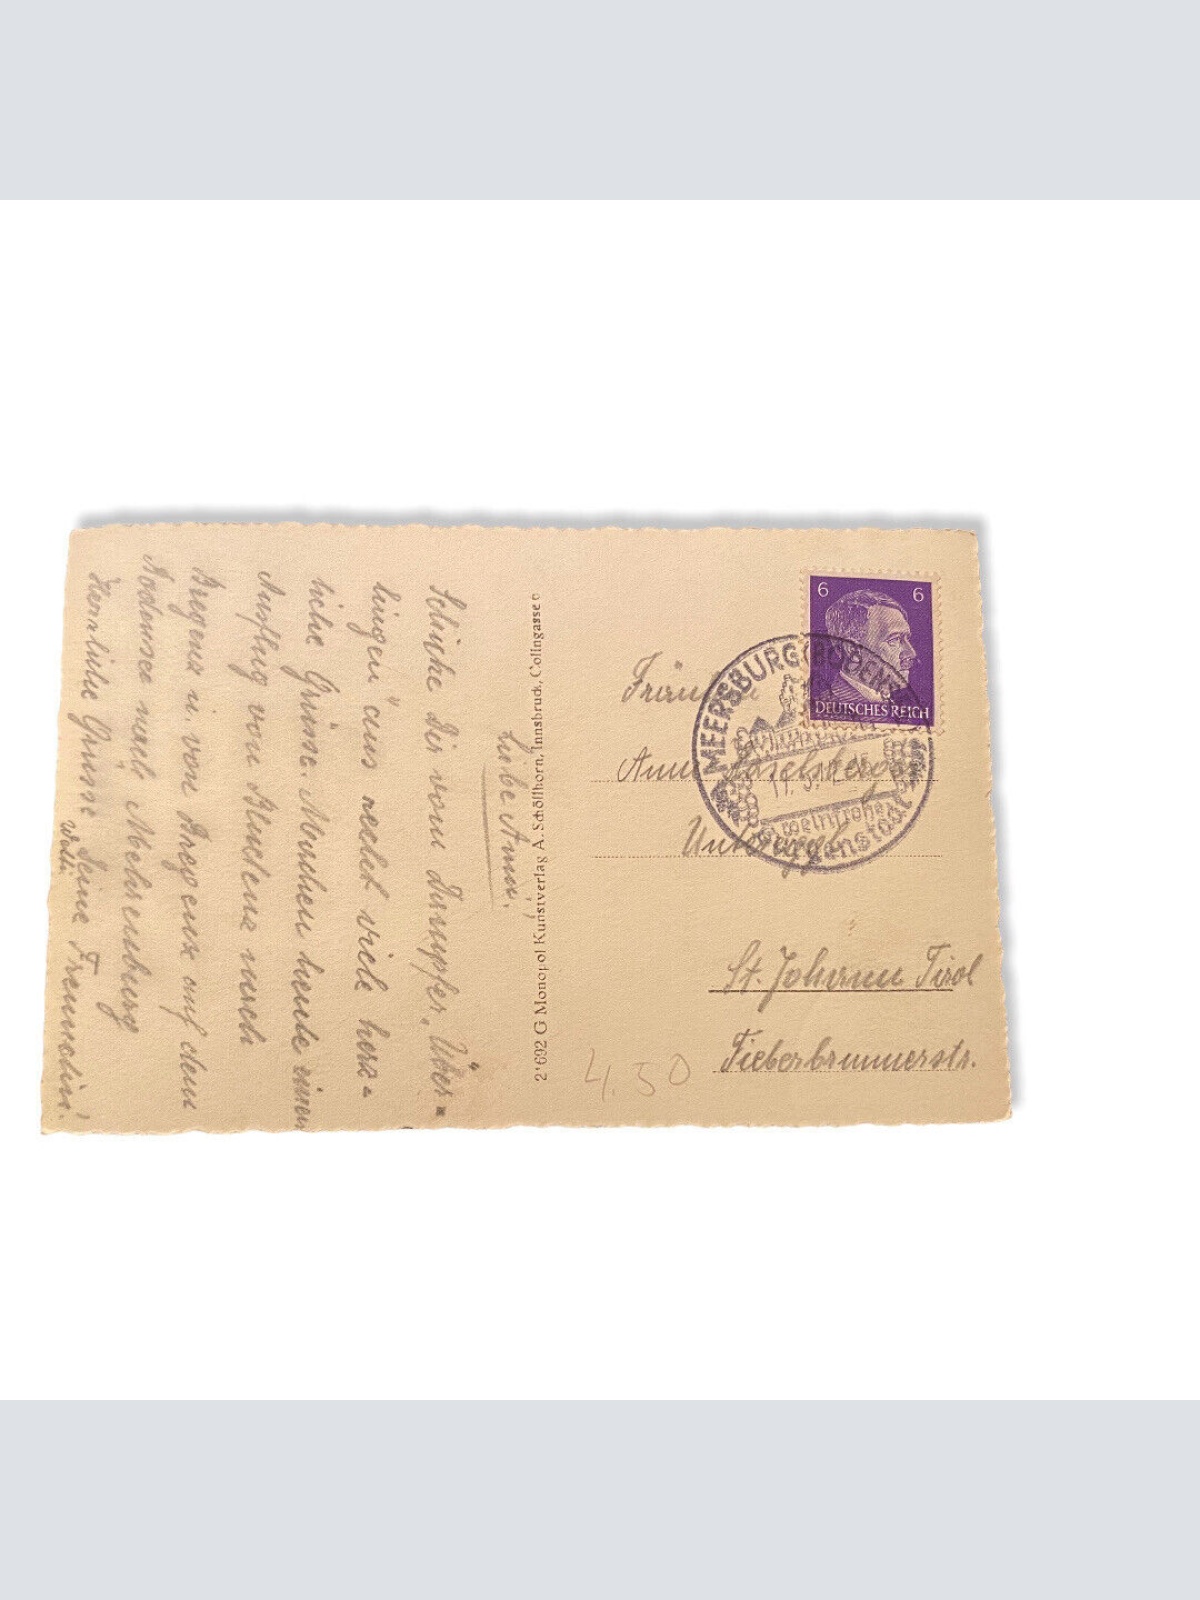 Liebe Anna!
Schicke Dir vom Dampfer „Über=
lingen" aus recht viele herz=
liche Grüsse. Machen heute einen
Ausflug von Bludenz nach
Bregenz u. von Bregenz auf dem
Bodensee nach Meersburg
Herzliche Grüsse Deine Freundin!
2'692 G Monopol Kunstverlag A. Schöllhorn, Innsbruck, Colingasse
6 6
DEUTSCHES REICH
MEERSBURG (BODENS
weinfrohe
Fräulein
Anna
St. Johann Tirol
Fieberbrunnerstr.
4.50